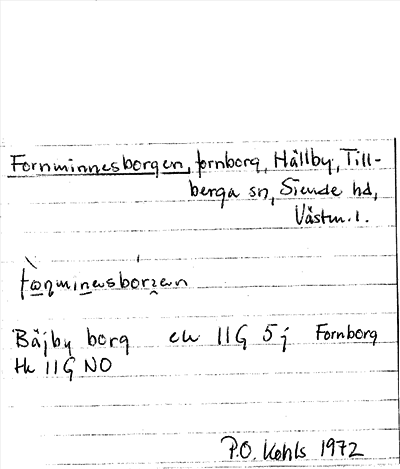 Fornminnesborgen, fornborg, Hällby, Till-
berga sn, Siende hd,
Västm. l.
Bäjby borg ek 11G 5j Fornborg
tk 11G NO
P.O. Kohls 1972